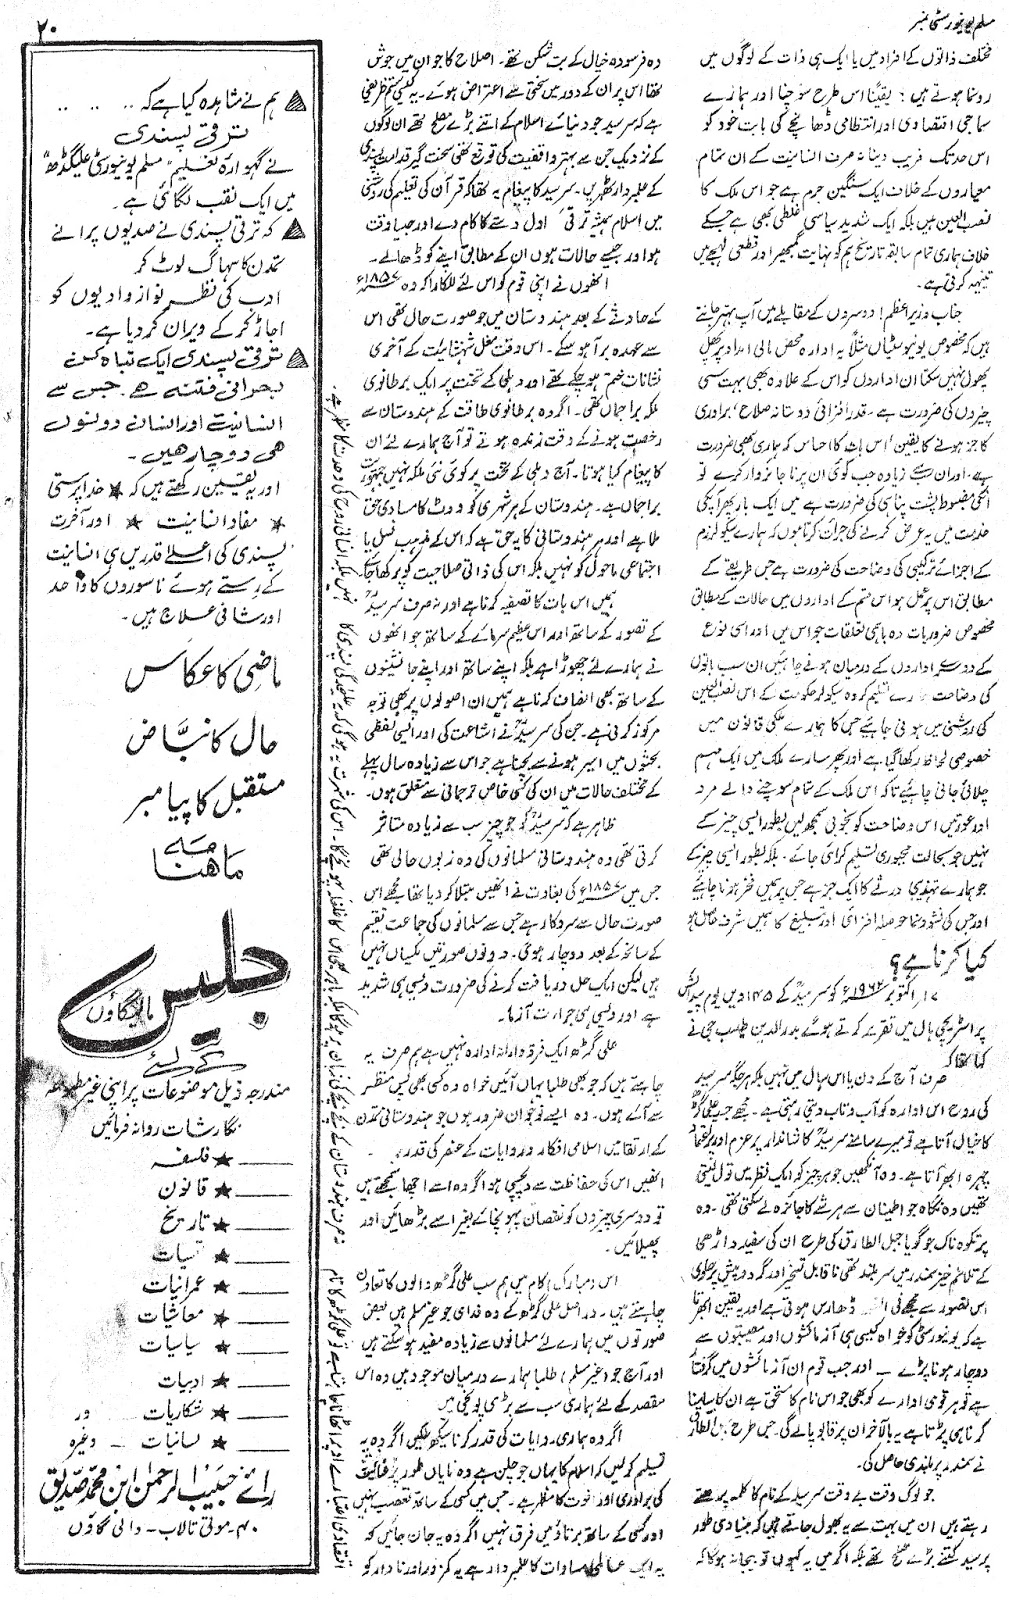 مسلم یونیورسٹی نمبر
۲۰
مختلف ذاتوں کے افراد میں یا ایک ہی ذات کے لوگوں میں
رونما ہوتے ہیں: یقیناً اس طرح سوچنا اور ہمارے
سماجی اقتصادی اور انتظامی ڈھانچے کی بابت خود کو
اس حد تک فریب دینا نہ صرف انسانیت کے ان تمام
معیاروں کے خلاف ایک سنگین جرم ہے جو اس ملک کا
نصب العین ہیں بلکہ ایک شدید سیاسی غلطی بھی ہے جسکے
خلاف ہماری تمام سابقہ تاریخ ہم کو نہایت گمبھیر اور قطعی لہجے میں
تنبیہہ کرتی ہے۔
جناب وزیر اعظم! دوسروں کے مقابلے میں آپ بہتر جانتے
ہیں کہ مخصوص یونیورسٹیاں مثلاً یہ ادارہ محض مالی امداد پر پھل
پھول نہیں سکتا ان اداروں کو اس کے علاوہ بھی بہت سی
چیزوں کی ضرورت ہے۔ قدر افزائی دوستانہ صلاح' برادری
کا جز ہونے کا یقین' اس بات کا احساس کہ ہماری بھی ضرورت
ہے، اور ان سب سے زیادہ جب کوئی ان پر ناجائز وار کرے تو
انکی مضبوط پشت پناہی کی ضرورت ہے میں ایک بار پھر آپکی
خدمت میں یہ عرض کرنے کی جرأت کرتا ہوں کہ ہمارے سیکولرزم
کے اجزائے ترکیبی کی وضاحت کی ضرورت ہے جس طریقے کے
مطابق اس پر عمل ہو اس قسم کے اداروں میں حالات کے مطابق
مخصوص ضروریات وہ باہمی تعلقات جو اس میں اور اسی نوع
کے دوسرے اداروں کے درمیان ہونے چاہئیں ان سب باتوں
کی وضاحت تسلیم کردہ سیکولر حکومت کے اس نصب العین
کی روشنی میں ہونی چاہئے جس کا ہمارے ملکی قانون میں
خصوصی لحاظ رکھا گیا ہے اور پھر سارے ملک میں ایک مہم
چلائی جانی چاہئے تاکہ اس ملک کے تمام سوچنے والے مرد
اور عورتیں اس وضاحت کو بخوبی سمجھ لیں بطور ایسی چیز کے
نہیں جو بحالت مجبوری تسلیم کرائی جائے۔ بلکہ بطور ایسی چیز کے
جو ہمارے تہذیبی ورثے کا ایک جز ہے جس پر ہمیں فخر ہونا چاہئے
اور جس کی نشوونما حوصلہ افزائی اور تبلیغ کا ہمیں شرف حاصل ہو
کیا کرنا ہے؟
۱۷ اکتوبر ۱۹۶۲ء کو سرسیدؒ کے ۱۴۵ ویں یوم پیدائش
پر اسٹریچی ہال میں تقریر کرتے ہوئے بدر الدین طیب جی نے
کہا تھا کہ
صرف آج کے دن یا اس ہال میں نہیں بلکہ ہر جگہ سرسید
کی روح اس ادارہ کو آب و تاب دیتی رہتی ہے۔ مجھے جب علی گڑھ
کا خیال آتا ہے تو میرے سامنے سرسیدؒ کا شاندار پر عزم اور
چہرہ ابھر آتا ہے۔ وہ آنکھیں جو ہر چیز کو ایک نظر میں تول لیتی
تھیں وہ نگاہ جو اطینان سے ہر شے کا جائزہ لے سکتی تھی۔ وہ
پر شکوہ ناک جو گویا جبل الطارق کی طرح ان کی سفید داڑھی
کے تلاطم خیز سمندر میں سربلند تھی ناقابل تسخیر اور گردوپیش پر حاوی
اس تصور سے مجھے ڈھارس ہوتی ہے اور یہ یقین ابھرتا
ہے کہ یونیورسٹی کو خواہ کیسی ہی آزمائشوں اور مصیبتوں سے
دوچار ہونا پڑے ۔ اور جب قوم ان آزمائشوں میں
ہے تو ہر قومی ادارے کو بھی جو اس نام کا مستحق ہے ان کا سامنا
کرنا ہی پڑتا ہے یہ بالآخر ان پر قابو پالے گی۔ جس طرح جبل الطارق
نے سمندر پر بلندی حاصل کی۔
جو لوگ وقت بے وقت سرسید کے نام کا کلمہ پڑھتے
رہتے ہیں ان میں بہت سے یہ بھول جاتے ہیں کہ بنیادی طور
پر سید کتنے بڑے مصلح تھے بلکہ اگر میں یہ کہوں تو بیجا نہ ہوگا کہ
وہ فرسودہ خیال کے بت شکن تھے۔ اصلاح کا جو ان میں جوش
تھا اس پر ان کے دور میں سختی سے اعتراض ہوئے۔ یہ کیسی ستم ظریفی
ہے کہ سرسید جو دنیائے اسلام کے اتنے بڑے مصلح تھے ان لوگوں
کے نزدیک جن سے بہتر واقفیت کی توقع تھی سخت گیر قدامت پسندی
کے علمبردار ٹھہریں۔ سرسید کا پیغام یہ تھا کہ قرآن کی تعلیم کی روشنی
میں اسلام ہمیشہ ترقی اول دستے کا کام دے اور جیسا وقت
ہو اور جیسے حالات ہوں ان کے مطابق اپنے کو ڈھالے۔
انھوں نے اپنی قوم کو اس لئے للکارا کہ وہ ۱۸۵۷ء
کے حادثے کے بعد ہندوستان میں جو صورت حال تھی اس
سے عہدہ برآ ہو سکے۔ اس وقت مغل شہنشاہیت کے آخری
نشانات ختم ہو چکے تھے اور دہلی کے تخت پر ایک برطانوی
ملکہ براجمان تھی۔ اگر وہ برطانوی طاقت کے ہندوستان سے
رخصت ہونے کے وقت زندہ ہوتے تو آج ہمارے لئے ان
کا پیغام کیا ہوتا۔ آج دہلی کے تخت پر کوئی نئی ملکہ نہیں جمہوریت
براجمان ہے۔ ہندوستان کے ہر شہری کو ووٹ کا مساوی حق
ملا ہے اور ہر ہندوستانی کا یہ حق ہے کہ اس کے مذہب نسل یا
اجتماعی ماحول کو نہیں بلکہ اس کی ذاتی صلاحیت کو پرکھا جائے
ہمیں اس بات کا تصفیہ کرنا ہے اور نہ صرف سرسیدؒ
کے تصور کے ساتھ اور اس عظیم سرمائے کے ساتھ جو انھوں
نے ہمارے لئے چھوڑا ہے بلکہ اپنے ساتھ اور اپنے جانشینوں
کے ساتھ بھی انصاف کرنا ہے ہمیں ان اصولوں پر بھی توجہ
مرکوز کرنی ہے۔ جن کی سرسیدؒ نے اشاعت کی اور ایسی لفظی
بحثوں میں اسیر ہونے سے بچنا ہے جو اس سے زیادہ سال پہلے
کے مختلف حالات میں ان کی کسی خاص ترجمانی سے متعلق ہوں۔
ظاہر ہے کہ سرسیدؒ کو جو چیز سب سے زیادہ متاثر
کرتی تھی وہ ہندوستانی مسلمانوں کی وہ زبوں حالی تھی
جس میں ۱۸۵۷ء کی بغاوت نے انھیں مبتلا کر دیا تھا مجھے اس
صورت حال سے سروکار ہے جس سے مسلمانوں کی جماعت تقسیم
کے سانحہ کے بعد دوچار ہوئی۔ دونوں صورتیں یکساں نہیں
ہیں لیکن ایک حل دریافت کرنے کی ضرورت ویسی ہی شدید
ہے اور ویسی ہی جرأت آزما۔
علی گڑھ ایک فرقہ وارانہ ادارہ نہیں ہے ہم صرف یہ
چاہتے ہیں کہ جو بھی طلبا یہاں آئیں خواہ وہ کسی بھی پس منظر
سے آئے ہوں۔ وہ ایسے نوجوان ضرور ہوں جو ہندوستانی تمدن
کے ارتقا میں اسلامی افکار و روایات کے عنصر کی قدر
انھیں اس کی حفاظت سے دلچسپی ہو اگر وہ اسے اچھا سمجھتے ہیں
تو دوسری چیزوں کو نقصان پہونچائے بغیر اسے بڑھائیں اور
پھیلائیں۔
اس مبارک کام میں ہم سب علی گڑھ والوں کا تعاون
چاہتے ہیں۔ دراصل علی گڑھ کے وہ فدائی جو غیر مسلم ہیں بعض
صورتوں میں ہمارے لئے مسلمانوں سے زیادہ مفید ہو سکتے ہیں
اور آج جو (غیر مسلم) طلبا ہمارے درمیان موجود ہیں وہ اس
مقصد کے لئے ہماری سب سے بڑی پونجی ہیں
اگر وہ ہماری روایات کی قدر کرنا سیکھ سکیں اگر وہ یہ
تسلیم کر لیں کہ اسلام کا یہاں جو چلن ہے وہ نمایاں طور پر
کی برادری اور اخوت کا مظہر ہے۔ جس میں کسی کے ساتھ تعصب نہیں
اور کسی کے ساتھ برتاؤ میں فرق نہیں اگر وہ یہ جان جائیں کہ
یہ ایسی عالمی مساوات کا علمبردار ہے یہ کمزور اور نادار کو
ہم نے مشاہدہ کیا ہے کہ
ترقی پسندی
نے گہوارۂ تعلیم "مسلم یونیورسٹی علیگڈھ"
میں ایک نقب لگائی ہے۔
کہ ترقی پسندی نے صدیوں پرانے
تمدن کا سہاگ لوٹ کر
ادب کی نظر نواز وادیوں کو
اجاڑ کر کے ویران کر دیا ہے۔
ترقی پسندی ایک تباہ کن
بحرانی فتنہ ہے۔ جس سے
انسانیت اور انسان دونوں
ہی دوچار ہیں۔
اور یہ یقین رکھتے ہیں کہ ★ خدا پرستی
★ مفاد انسانیت ★ اور آخرت
پسندی کی اعلےٰ قدریں ہی انسانیت
کے رستے ہوئے ناسوروں کا واحد
اور شافی علاج ہیں۔
ماضی کا عکاس
حال کا نبّاض
مستقبل کا پیامبر
ہے
ماہنامہ
جلیس
مالیگاؤں
کے لئے
مندرجہ ذیل موضوعات پر اپنی غیر مطبوعہ
نگارشات روانہ فرمائیں
★ فلسفہ
★ قانون
★ تاریخ
★
★ عمرانیات
★ معاشیات
★ سیاسیات
★ ادبیات
★ شکاریات اور
★ لسانیات وغیرہ
رائے حبیب الرحمٰن ابن محمد صدیق
۴۰۔ موتی تالاب۔ مالی گاؤں